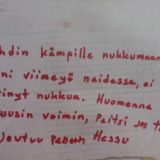 hdin kämpille nukkumaan
ni viimeyö neidossa, ei
vinyt nukkua. Huomenna
uusin voimin, paitsi jos t
joutuu panoon Hessu